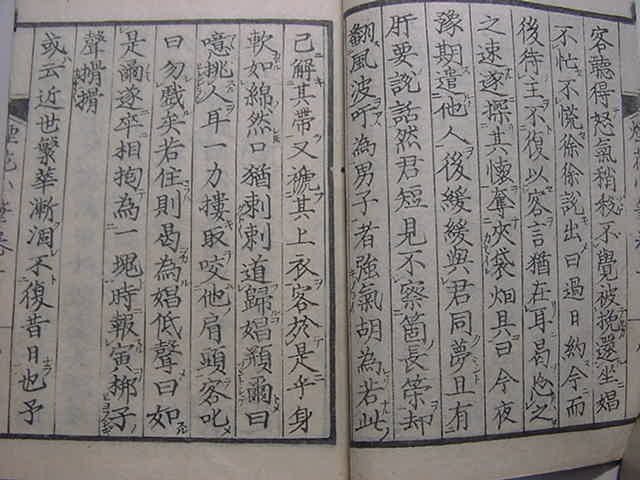 客聽得怒氣稍殺不覺被挽還坐娼
不忙不慌徐徐說出曰過日約今而
後待主不復以客言猶在耳曷忘之
之速遂探其懷奪夾袋烟具曰今夜
豫期遣他人後緩緩與君同夢且有
肝要說話然君短見不察箇長策却
翻風波吁為男子者強氣胡為若此
已解其帶又褫其上衣客於是乎身
軟如綿然口猶刺刺道歸娼頹爾曰
噫挑人耳一力摟取咬他肩頭客叱
曰勿戲矣若住則曷為娼低聲曰如
是爾遂卒相抱為一塊時報寅梆子
聲搰搰
或云近世繁華漸涸不復昔日也予